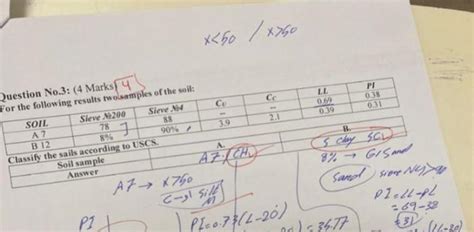 x<50 / x>50
Question No.3: (4 Marks) 4
For the following results two samples of the soil:
SOIL Sieve №200 Sieve №4 Cu Cc LL PI
A 7 78 88 -- -- 0.69 0.38
B 12 8% 90% 3.9 2.1 0.39 0.31
Classify the sails according to USCS.
Soil sample A. B.
Answer A7, CH
8% → G/Sand
A7 → x>50
Sand
PI = LL - PL
= 69 - 38
= 31
PI
PI = 0.73(LL-20) = 35.77
(LL-20)